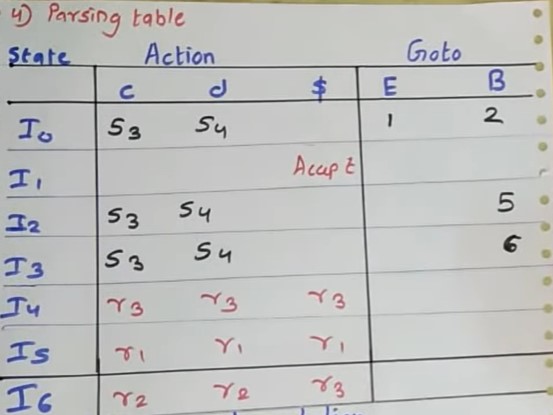 4) Parsing table
State Action Goto
c d $ E B
I0 S3 S4 1 2
I1 Accept
I2 S3 S4 5
I3 S3 S4 6
I4 r3 r3 r3
I5 r1 r1 r1
I6 r2 r2 r3